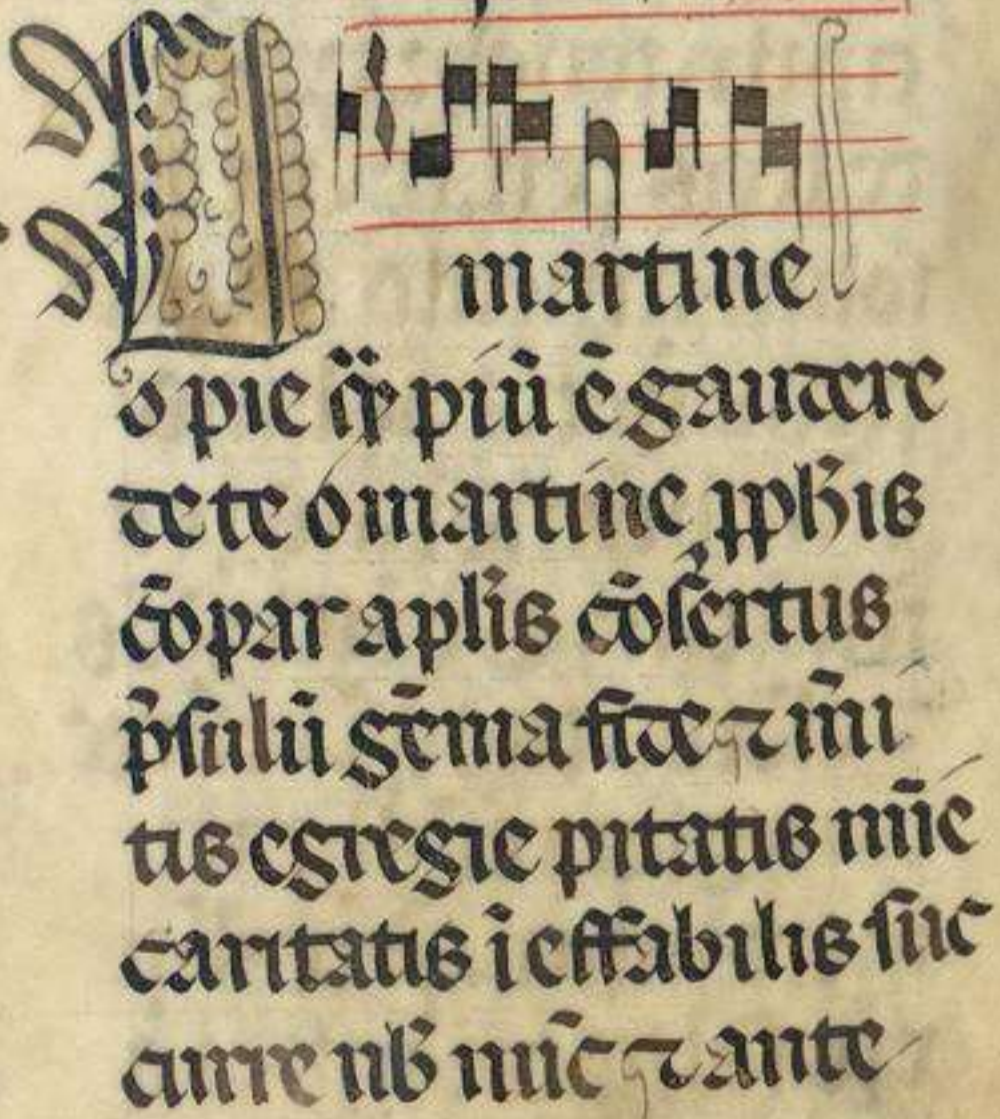 martine
o pie q̄ piū ē gaudere
de te o martine ꝓph̄is
cōpar apl̄is cōſertus
p̄ſulū gēma fide ⁊ m̄i
tis egregie pitatis mīe
caritatis īeffabilis ſuc
curre nb̄ nūc ⁊ ante